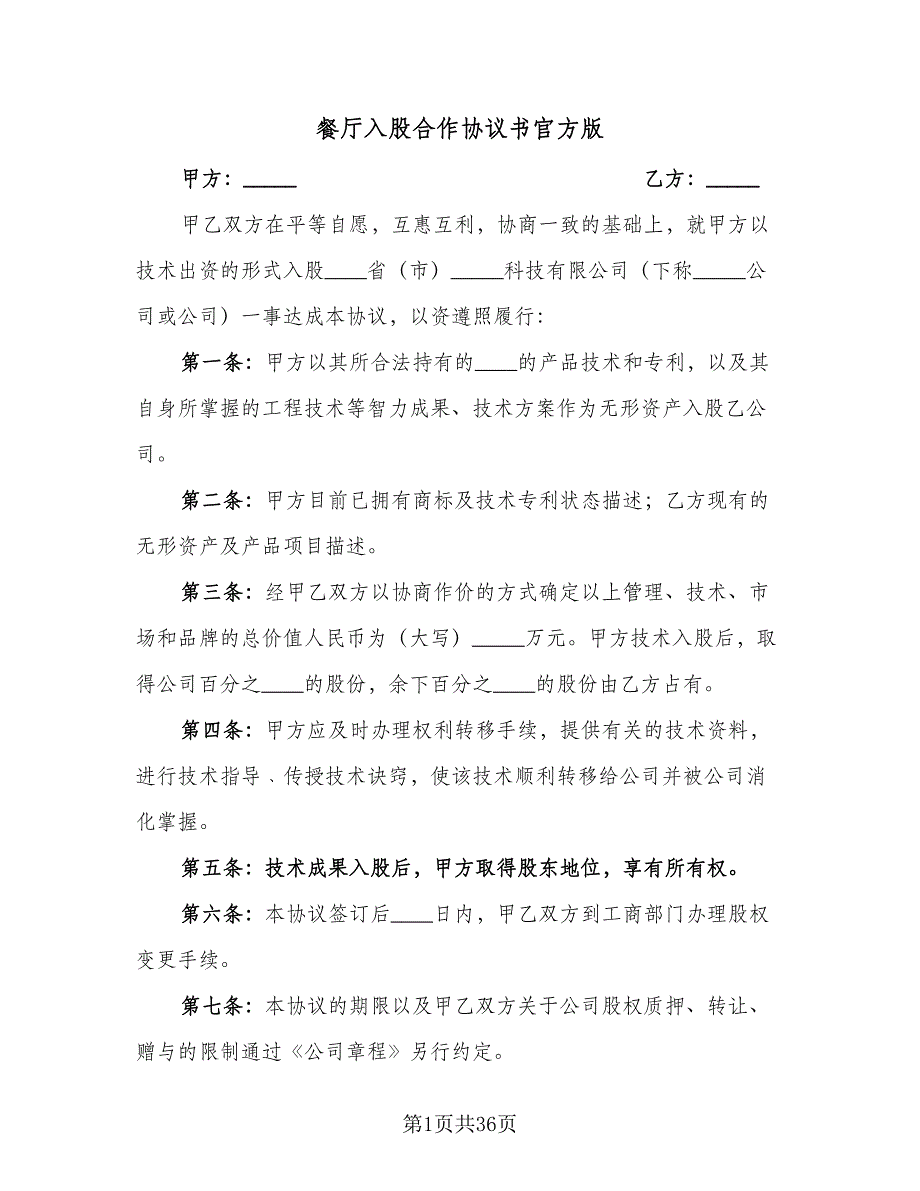 餐厅入股合作协议书官方版
甲方：_____ 乙方：_____
甲乙双方在平等自愿，互惠互利，协商一致的基础上，就甲方以
技术出资的形式入股____省（市）_____科技有限公司（下称_____公
司或公司）一事达成本协议，以资遵照履行：
第一条：甲方以其所合法持有的____的产品技术和专利，以及其
自身所掌握的工程技术等智力成果、技术方案作为无形资产入股乙公
司。
第二条：甲方目前已拥有商标及技术专利状态描述；乙方现有的
无形资产及产品项目描述。
第三条：经甲乙双方以协商作价的方式确定以上管理、技术、市
场和品牌的总价值人民币为（大写）_____万元。甲方技术入股后，取
得公司百分之____的股份，余下百分之____的股份由乙方占有。
第四条：甲方应及时办理权利转移手续，提供有关的技术资料，
进行技术指导﹑传授技术诀窍，使该技术顺利转移给公司并被公司消
化掌握。
第五条：技术成果入股后，甲方取得股东地位，享有所有权。
第六条：本协议签订后____日内，甲乙双方到工商部门办理股权
变更手续。
第七条：本协议的期限以及甲乙双方关于公司股权质押、转让、
赠与的限制通过《公司章程》另行约定。
第1页共36页